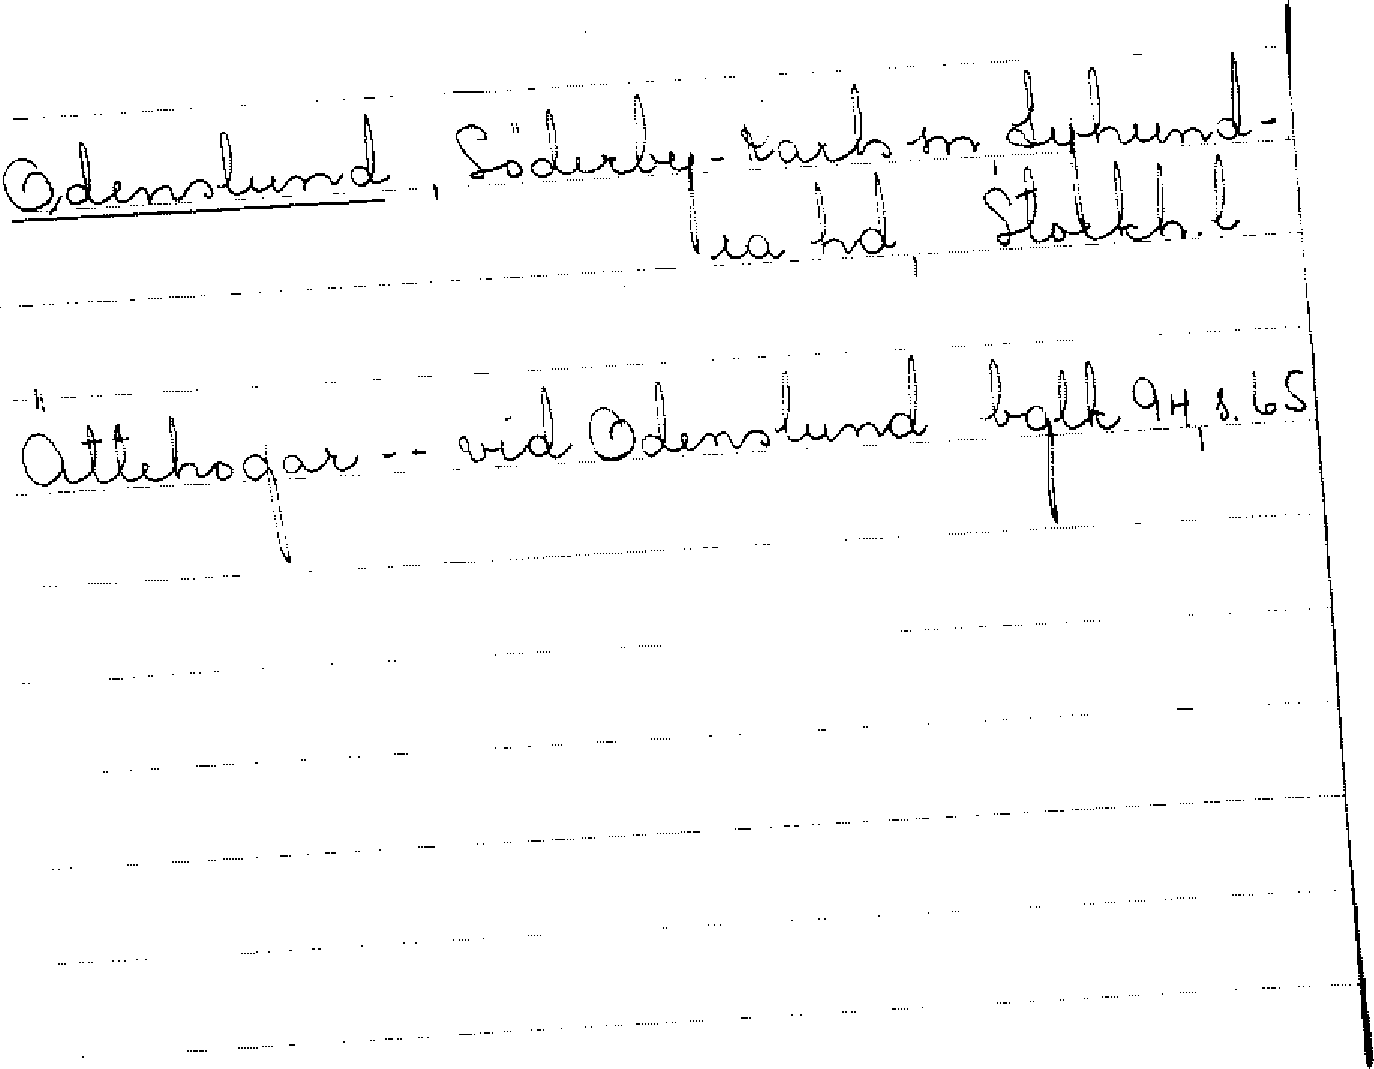 Odenslund, Söderby-Karls sn Lyhund-
ra hd, Stockh. l
Ättehogar -- vid Odenslund bglk 94, s. 65